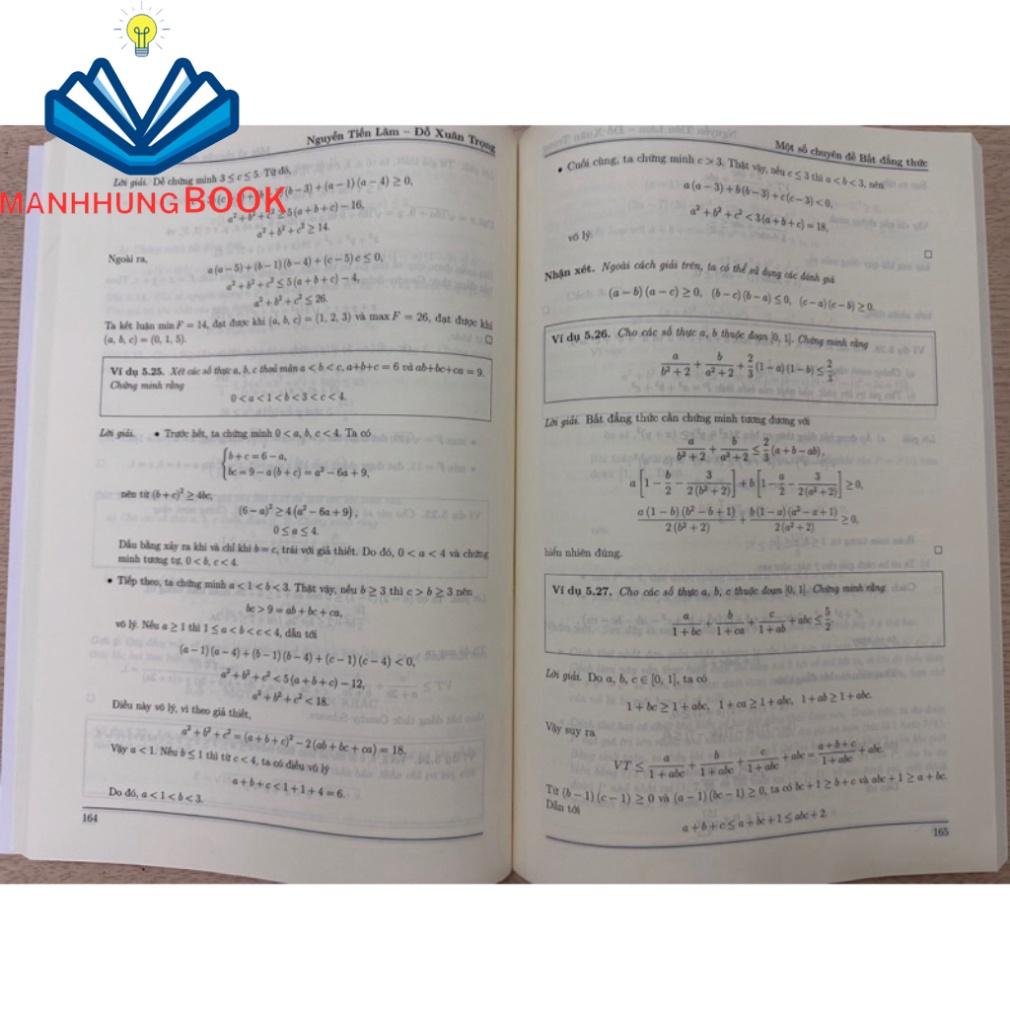 MANHHUNG BOOK
Nguyễn Tiến Lâm – Đỗ Xuân Trọng
Lời giải. Dễ chứng minh 3 ≤ c ≤ 5. Từ đó,
(b−3)+(a−1)(a−4) ≥ 0,
a²+b²+c² ≥ 5(a+b+c)−16,
a²+b²+c² ≥ 14.
Ngoài ra,
a(a−5)+(b−1)(b−4)+(c−5)c ≤ 0,
a²+b²+c² ≤ 5(a+b+c)−4,
a²+b²+c² ≤ 26.
Ta kết luận min F = 14, đạt được khi (a, b, c) = (1, 2, 3) và max F = 26, đạt được khi
(a, b, c) = (0, 1, 5). □
Ví dụ 5.25. Xét các số thực a, b, c thoả mãn a < b < c, a+b+c = 6 và ab+bc+ca = 9.
Chứng minh rằng
0 < a < 1 < b < 3 < c < 4.
Lời giải. • Trước hết, ta chứng minh 0 < a, b, c < 4. Ta có
{b+c = 6−a,
bc = 9−a(b+c) = a²−6a+9,
nên từ (b+c)² ≥ 4bc,
(6−a)² ≥ 4(a²−6a+9),
0 ≤ a ≤ 4.
Dấu bằng xảy ra khi và chỉ khi b = c, trái với giả thiết. Do đó, 0 < a < 4 và chứng
minh tương tự, 0 < b, c < 4.
• Tiếp theo, ta chứng minh a < 1 < b < 3. Thật vậy, nếu b ≥ 3 thì c > b ≥ 3 nên
bc > 9 = ab+bc+ca,
vô lý. Nếu a ≥ 1 thì 1 ≤ a < b < c < 4, dẫn tới
(a−1)(a−4)+(b−1)(b−4)+(c−1)(c−4) < 0,
a²+b²+c² < 5(a+b+c)−12,
a²+b²+c² < 18.
Điều này vô lý, vì theo giả thiết,
a²+b²+c² = (a+b+c)²−2(ab+bc+ca) = 18.
Vậy a < 1. Nếu b ≤ 1 thì từ c < 4, ta có điều vô lý
a+b+c < 1+1+4 = 6.
Do đó, a < 1 < b < 3.
164
Một số chuyên đề Bất đẳng thức
• Cuối cùng, ta chứng minh c > 3. Thật vậy, nếu c ≤ 3 thì a < b < 3, nên
a(a−3)+b(b−3)+c(c−3) < 0,
a²+b²+c² < 3(a+b+c) = 18,
vô lý.
□
Nhận xét. Ngoài cách giải trên, ta có thể sử dụng các đánh giá
(a−b)(a−c) ≥ 0, (b−c)(b−a) ≤ 0, (c−a)(c−b) ≥ 0.
Ví dụ 5.26. Cho các số thực a, b thuộc đoạn [0, 1]. Chứng minh rằng
a/(b²+2) + b/(a²+2) + 2/3(1−a)(1−b) ≤ 2/3.
Lời giải. Bất đẳng thức cần chứng minh tương đương với
a/(b²+2) + b/(a²+2) ≤ 2/3(a+b−ab),
a[1 − b/2 − 3/(2(b²+2))] + b[1 − a/2 − 3/(2(a²+2))] ≥ 0,
a(1−b)(b²−b+1)/(2(b²+2)) + b(1−a)(a²−a+1)/(2(a²+2)) ≥ 0,
hiển nhiên đúng. □
Ví dụ 5.27. Cho các số thực a, b, c thuộc đoạn [0, 1]. Chứng minh rằng
a/(1+bc) + b/(1+ca) + c/(1+ab) + abc ≤ 5/2.
Lời giải. Do a, b, c ∈ [0, 1], ta có
1+bc ≥ 1+abc, 1+ca ≥ 1+abc, 1+ab ≥ 1+abc.
Vậy suy ra
VT ≤ a/(1+abc) + b/(1+abc) + c/(1+abc) + abc = (a+b+c)/(1+abc) + abc.
Từ (b−1)(c−1) ≥ 0 và (a−1)(bc−1) ≥ 0, ta có bc+1 ≥ b+c và abc+1 ≥ a+bc.
Dẫn tới
a+b+c ≤ a+bc+1 ≤ abc+2.
165